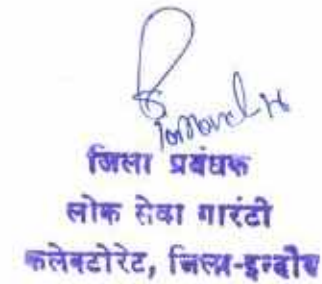 जिला प्रबंधक
लोक सेवा गारंटी
कलेक्टोरेट, जिला-इन्दौर